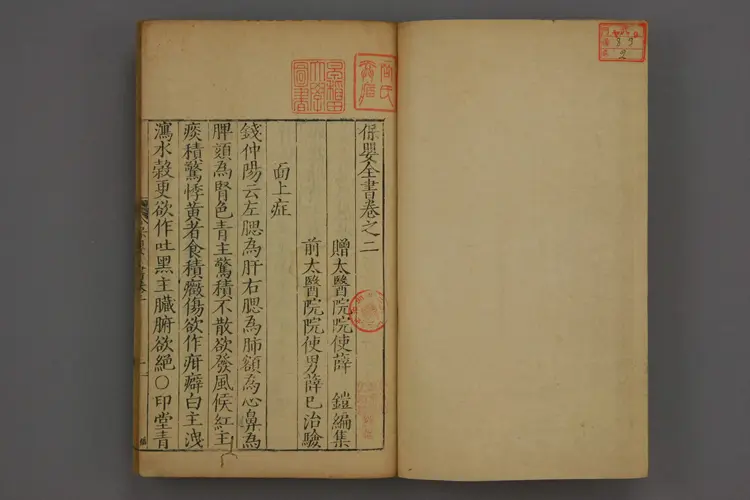 保嬰全書卷之二
贈太醫院院使薛 鎧編集
前太醫院院使男薛已治驗
面上症
錢仲陽云左腮為肝右腮為肺額為心鼻為
脾頦為腎色青主驚積不散欲發風候紅主
痰積驚悸黃者食積癥傷欲作疳癖白主洩
瀉水穀更欲作吐黑主臟腑欲絕○印堂青